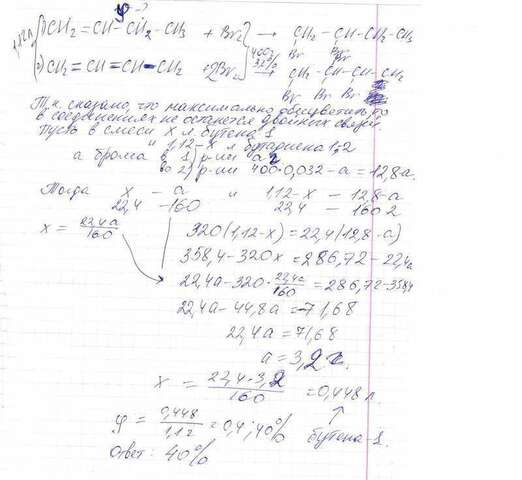 φ - ?
1,12 л
1) CH₂ = CH - CH₂ - CH₃ + Br₂ → CH₂ - CH - CH₂ - CH₃
Br Br
400 г
3,2%
2) CH₂ = CH = CH - CH₂ + 2Br₂ → CH₂ - CH - CH - CH₂
Br Br Br
Т.к. сказано, что максимально обесцветить, то
в соединениях не останется двойных связей.
Пусть в смеси x л бутена 1
" 1,12-x л бутадиена 1,2
а брома в 1) р-ии а г
во 2) р-ии 400·0,032 - a = 12,8-a.
Тогда x - a и 1,12-x - 12,8-a
22,4 - 160 22,4 - 160·2
x = 22,4a/160
320(1,12-x) = 22,4(12,8-a)
358,4 - 320x = 286,72 - 22,4a
22,4a - 320 · 22,4a/160 = 286,72 - 358,4
22,4a - 44,8a = -71,68
22,4a = 71,68
a = 3,2 г.
x = 22,4·3,2/160 = 0,448 л.
↑
бутена-1.
φ = 0,448/1,12 = 0,4; 40%
Ответ: 40%